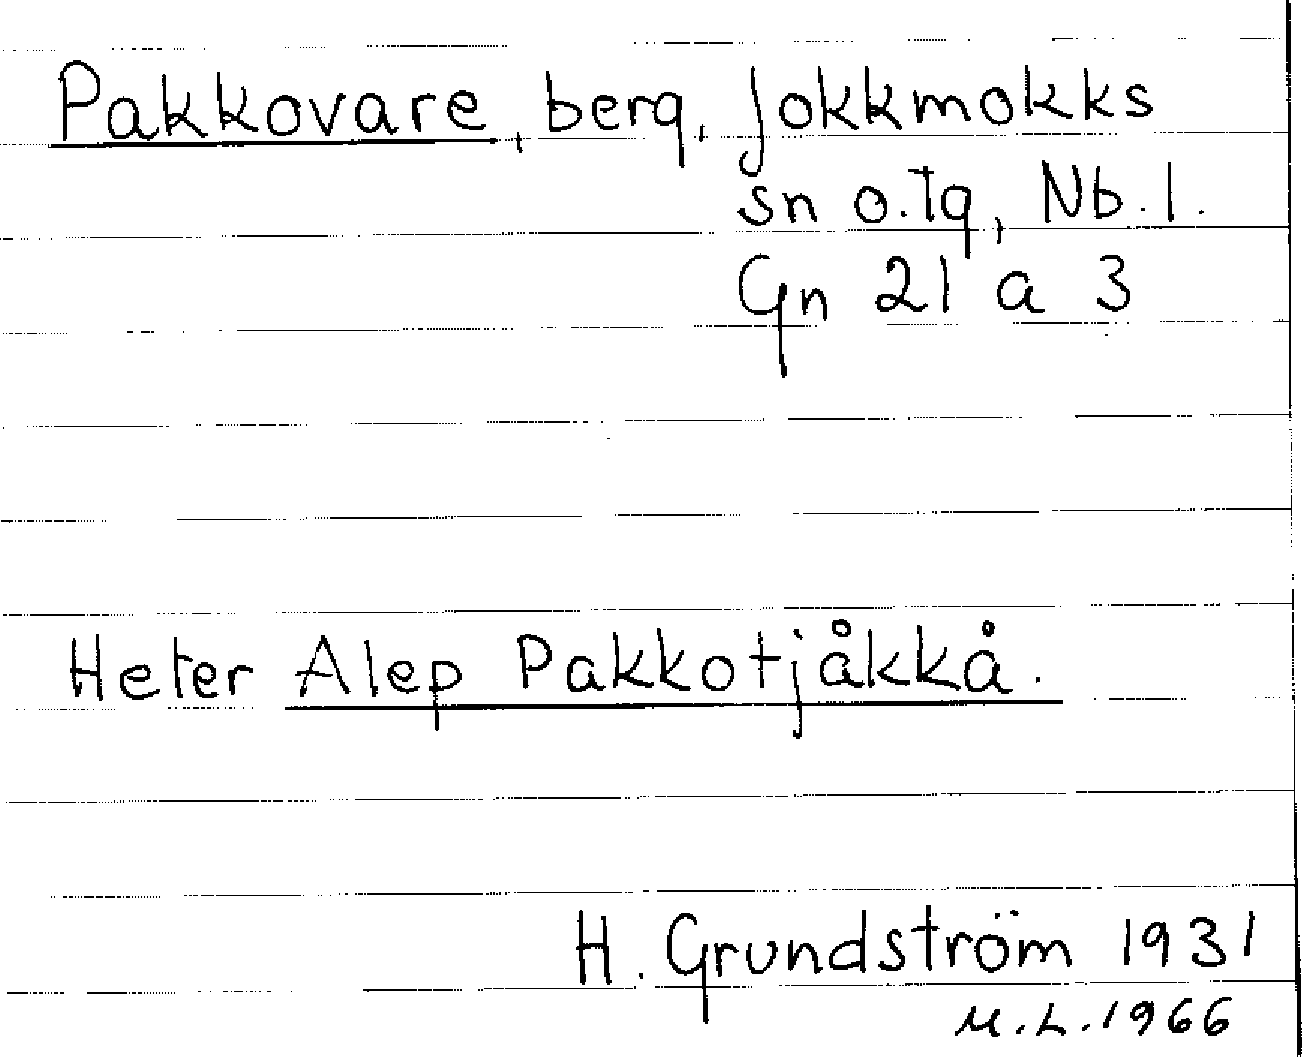 Pakkovare, berg, Jokkmokks
sn o. tg, Nb. l.
Gn 21 a 3
Heter Alep Pakkotjåkkå.
H. Grundström 1931
M.L. 1966